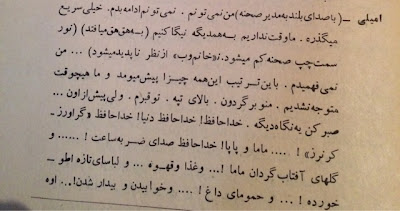 امیلی ــ (با صدای بلند به مدیر صحنه) من نمی‌تونم . نمی‌تونم ادامه بدم. خیلی سریع
میگذره . ما وقت نداریم به همدیگه نیگا کنیم (به هق‌هق میافتد) (نور
سمت چپ صحنه کم میشود. «خانم وب» از نظر ناپدید میشود) ... من
نمی‌فهمیدم . باین ترتیب این همه چیزا پیش میومد و ما هیچوقت
متوجه نشدیم . منو برگردون . بالای تپه . تو قبرم . ولی پیش از اون ...
صبر کن یه نگاه دیگه . خداحافظ! خداحافظ دنیا! خداحافظ «گراورز ـ
کرنرز» ! .... ماما و پاپا! خداحافظ صدای ضربه ساعت ! ...... و
گلهای آفتاب گردان ماما !... و غذا و قهوه ... و لباسای تازه اطو ـ
خورده ! ... و حمومای داغ ! .... و خوابیدن و بیدار شدن!.. اوه